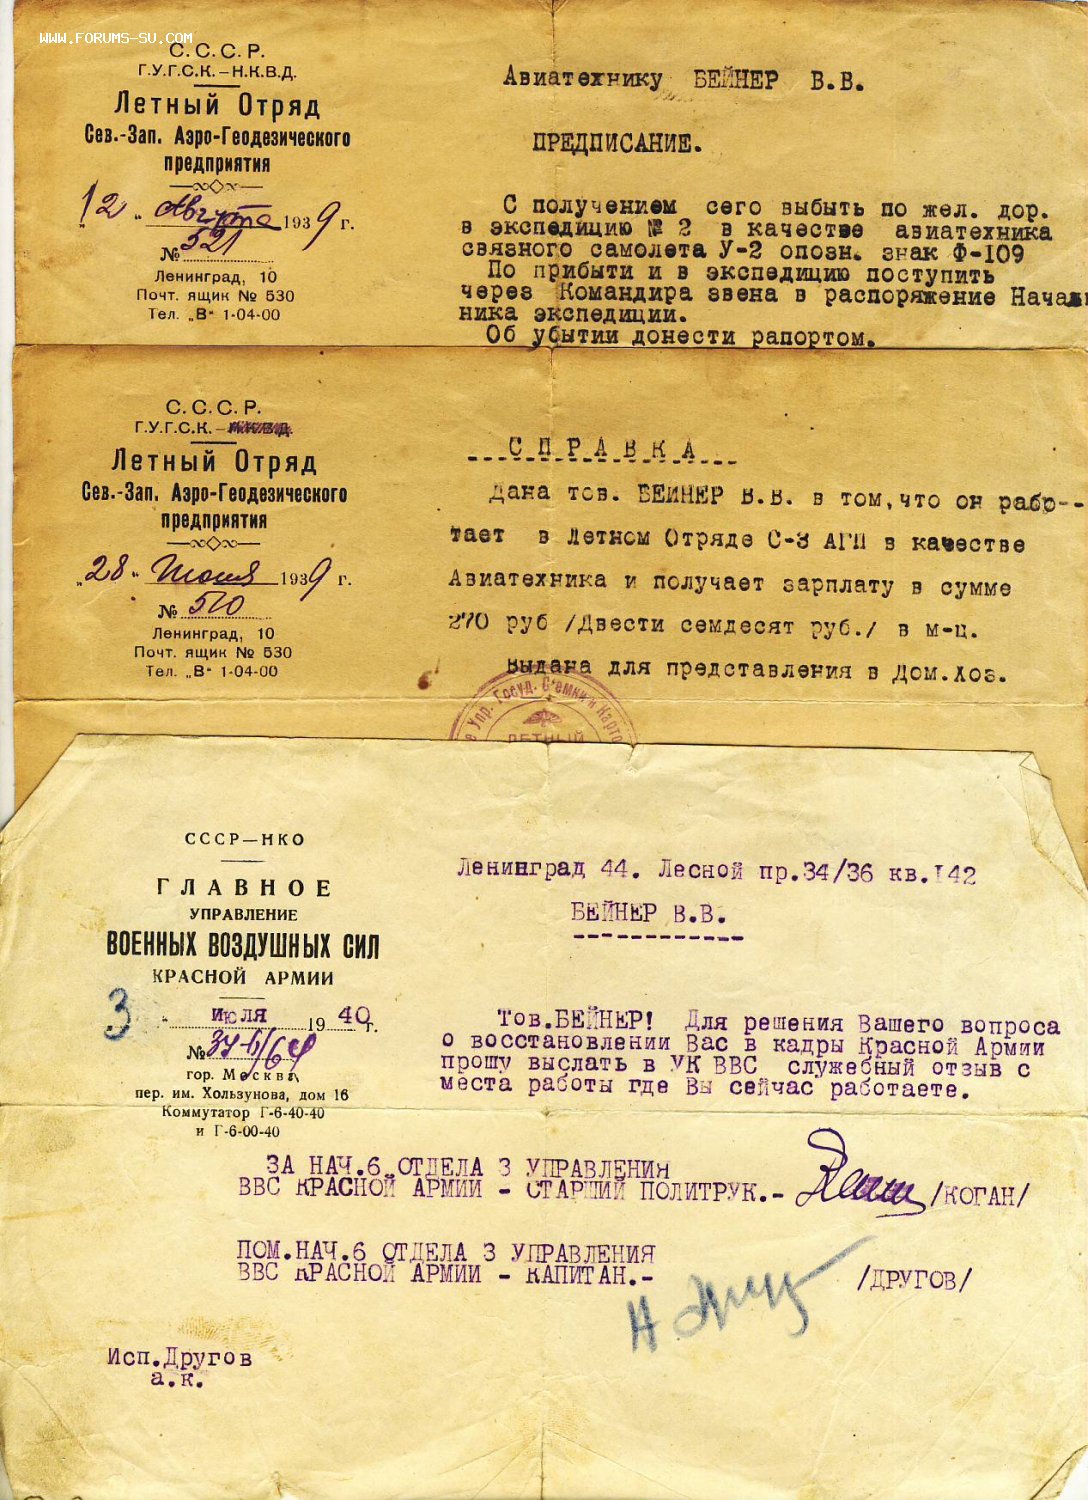 WWW.FORUMS-SU.COM
С.С.С.Р.
Г.У.Г.С.К.–Н.К.В.Д.
Летный Отряд
Сев.-Зап. Аэро-Геодезического
предприятия
12 „ Августа 1939 г.
№ 521
Ленинград, 10
Почт. ящик № 530
Тел. „В“ 1-04-00
Авиатехнику БЕЙНЕР В.В.
ПРЕДПИСАНИЕ.
С получением сего выбыть по жел. дор.
в экспедицию № 2 в качестве авиатехника
связного самолета У-2 опозн. знак Ф-109
По прибыти и в экспедицию поступить
через Командира звена в распоряжение Началь
ника экспедиции.
Об убытии донести рапортом.
С.С.С.Р.
Г.У.Г.С.К.–
Летный Отряд
Сев.-Зап. Аэро-Геодезического
предприятия
„28“ Июня 1939 г.
№ 510
Ленинград, 10
Почт. ящик № 530
Тел. „В“ 1-04-00
СПРАВКА
Дана тов. БЕЙНЕР В.В. в том, что он рабо--
тает в Летном Отряде С-З АГП в качестве
Авиатехника и получает зарплату в сумме
270 руб /Двести семдесят руб./ в м-ц.
Выдана для представления в Дом.Хоз.
Упр. Госуд. С'емки и Карто
ЛЕТНЫЙ
СССР—НКО
ГЛАВНОЕ
УПРАВЛЕНИЕ
ВОЕННЫХ ВОЗДУШНЫХ СИЛ
КРАСНОЙ АРМИИ
3 „ июля 1940 г.
№
гор. Москва
пер. им. Хользунова, дом 16
Коммутатор Г-6-40-40
и Г-6-00-40
Ленинград 44. Лесной пр.34/36 кв.I42
БЕЙНЕР В.В.
Тов.БЕЙНЕР! Для решения Вашего вопроса
о восстановлении Вас в кадры Красной Армии
прошу выслать в УК ВВС служебный отзыв с
места работы где Вы сейчас работаете.
ЗА НАЧ.6 ОТДЕЛА 3 УПРАВЛЕНИЯ
ВВС КРАСНОЙ АРМИИ - СТАРШИЙ ПОЛИТРУК.- /КОГАН/
ПОМ.НАЧ.6 ОТДЕЛА 3 УПРАВЛЕНИЯ
ВВС КРАСНОЙ АРМИИ - КАПИТАН.- /ДРУГОВ/
Исп.Другов
а.к.